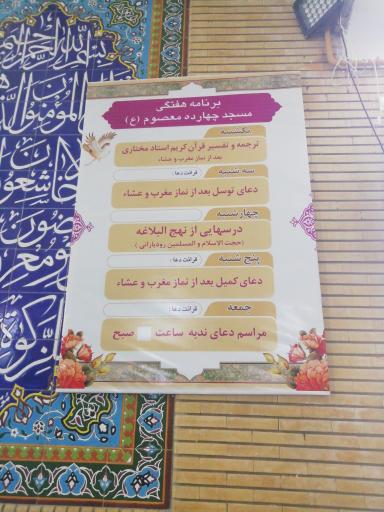 بسم الله الرحمن الرحیم
برنامه هفتگی
مسجد چهارده معصوم (ع)
یکشنبه
ترجمه و تفسیر قرآن کریم استاد مختاری
بعد از نماز مغرب و عشاء
سه شنبه
قرائت دعا:
دعای توسل بعد از نماز مغرب و عشاء
چهارشنبه
درسهایی از نهج البلاغه
(حجت الاسلام و المسلمین رودبارانی)
پنج شنبه
قرائت دعا:
دعای کمیل بعد از نماز مغرب و عشاء
جمعه
قرائت دعا:
مراسم دعای ندبه ساعت صبح